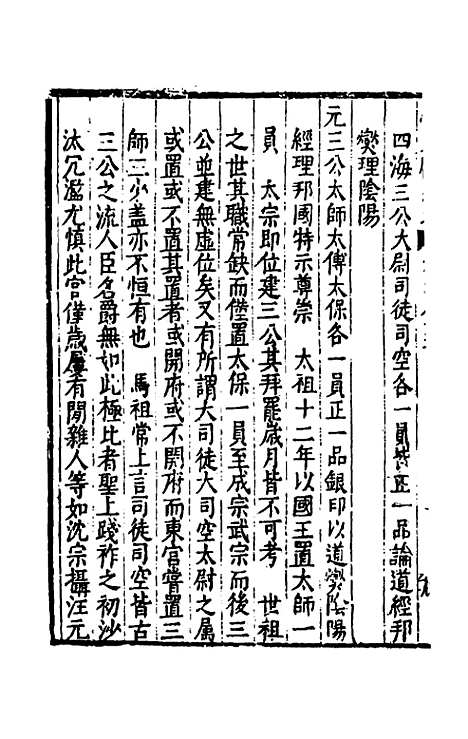 四海三公大尉司徒司空各一員皆正一品論道經邦
爕理陰陽
元三公太師太傅太保各一員正一品銀印以道爕陰陽
經理邦國特示尊崇　太祖十二年以國王置太師一
員　太宗即位建三公其拜罷歲月皆不可考　世祖
之世其職常缺而僅置太保一員至成宗武宗而後三
公並建無虚位矣又有所謂大司徒大司空太尉之属
或置或不置其置者或開府或不開府而東宫嘗置三
師三少盖亦不恒有也　馬祖常上言司徒司空皆古
三公之流人臣名爵無如此極比者聖上踐祚之初沙
汰冗濫尤慎此官僅歲屢有閒雜人等如沈宗攝汪元